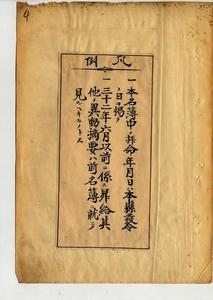 凡例
一本名簿中ノ拝命年月日ハ本縣发令
ノ日ヲ掲ク
一三十二年六月以前ニ係ル昇給其
他ノ異動摘要ハ前名簿ニ就テ
見ルヘキモノトス